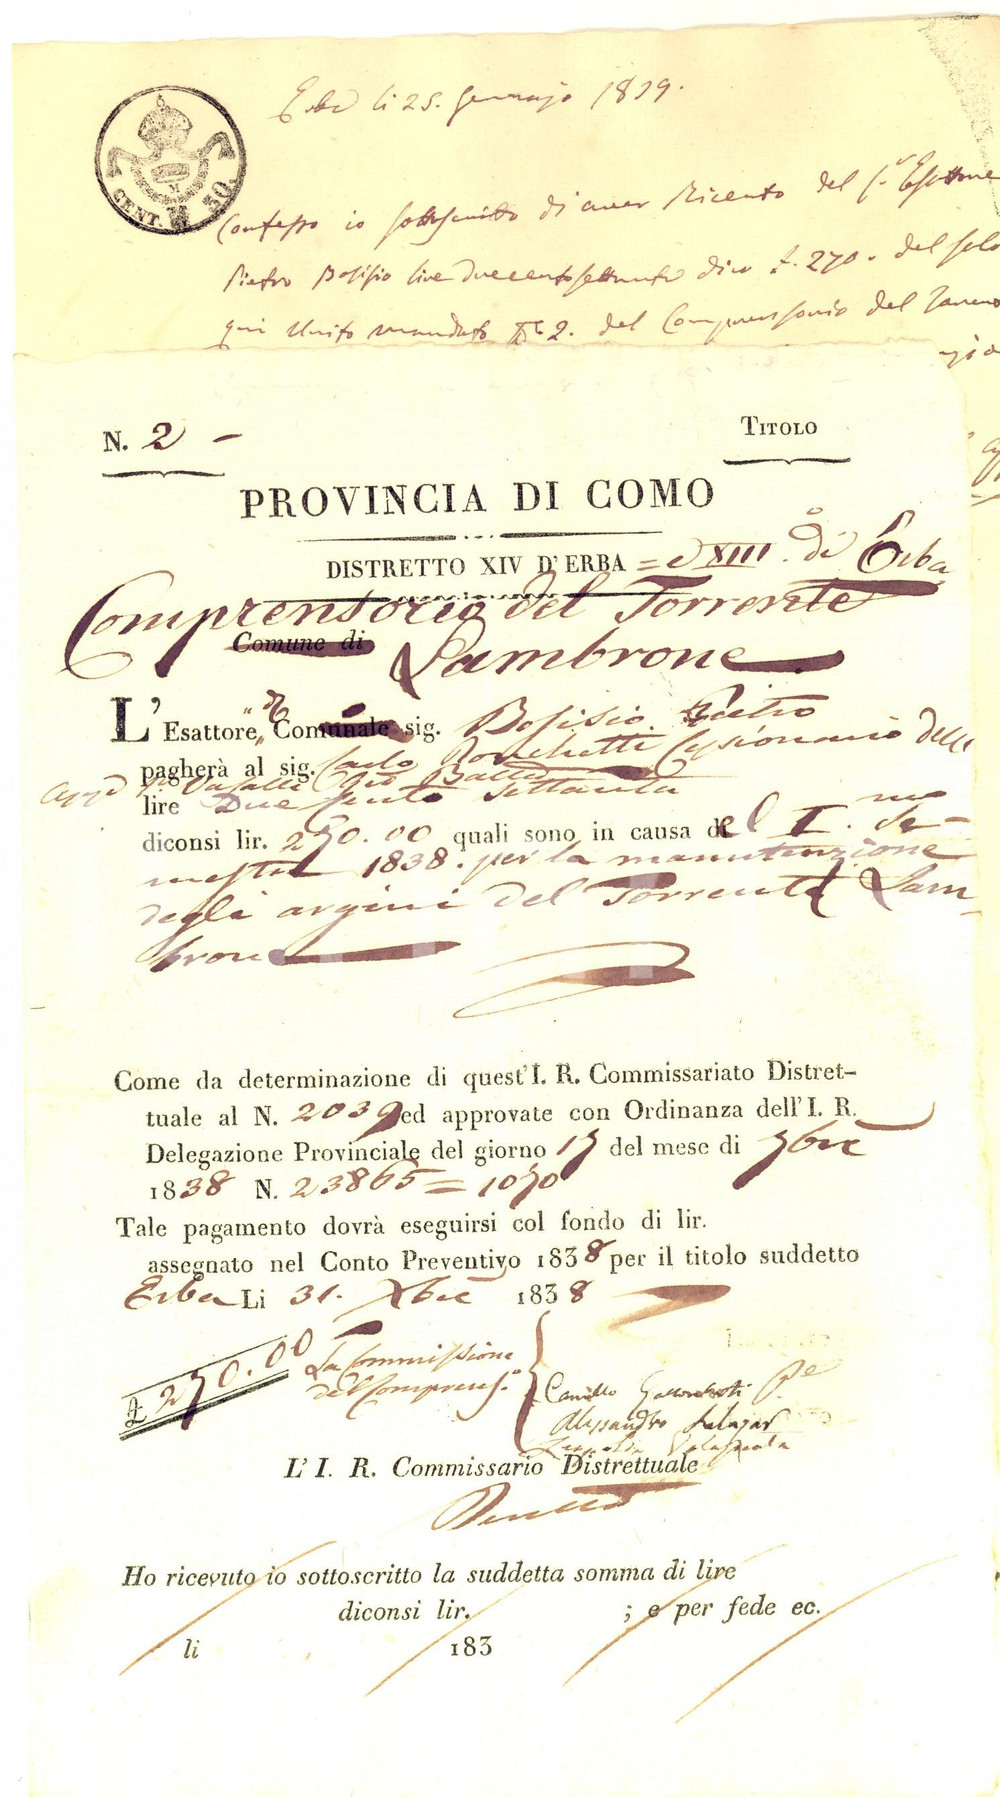 Erba li 25. Gennajo 1839.
CENT. 30.
Confesso io sottoscritto di aver Ricevuto del S.r Esattore
Pietro Bosisio lire duecentosettanta dico £. 270. del solo
qui Unito mandato N.o 2. del Comprensorio del
N. 2 -
TITOLO
PROVINCIA DI COMO
DISTRETTO XIV D'ERBA = e XIII.o di Erba
Comprensorio del Torrente
Comune di
Lambrone
L'Esattore, del Comunale sig. Bosisio Pietro
pagherà al sig. Carlo Ronchetti Cessionario delli
lire Due Cento Settanta
diconsi lir. 270.00 quali sono in causa del I.mo Se-
mestre 1838. per la manutenzione
degli argini del Torrente Lam-
brone
Come da determinazione di quest'I. R. Commissariato Distret-
tuale al N. 2039 ed approvate con Ordinanza dell'I. R.
Delegazione Provinciale del giorno 17 del mese di 7bre
1838 N. 23865 = 1070
Tale pagamento dovrà eseguirsi col fondo di lir.
assegnato nel Conto Preventivo 1838 per il titolo suddetto
Erba Li 31. Xbre 1838
£ 270.00
La Commissione
del Comprens.o
Camillo
Alessandro Salazar
L'I. R. Commissario Distrettuale
Ho ricevuto io sottoscritto la suddetta somma di lire
diconsi lir. ; e per fede ec.
li 183